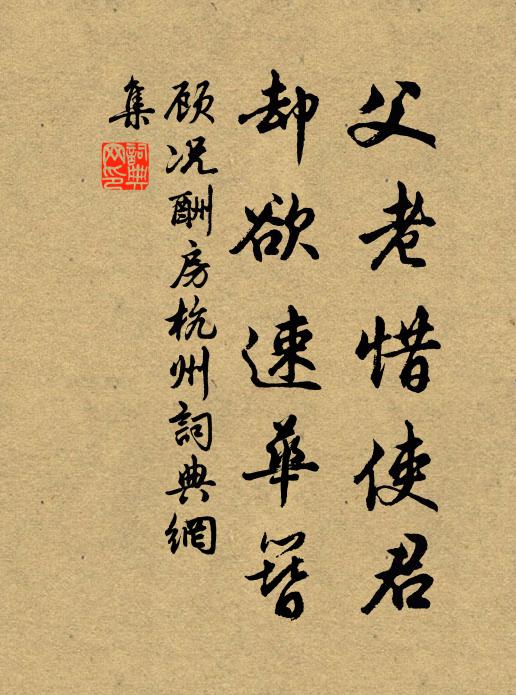 父老惜使君
却欲速華簪
顾况酬房杭州詞典網
集
詞典網印